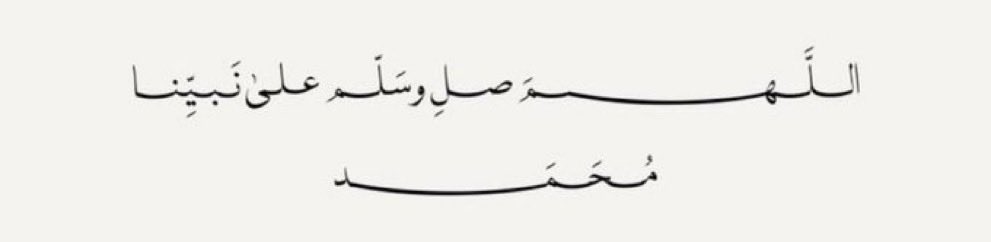 اللَّهمَ صلِ وسَلّم على نَبيِّنا
مُحَمَد